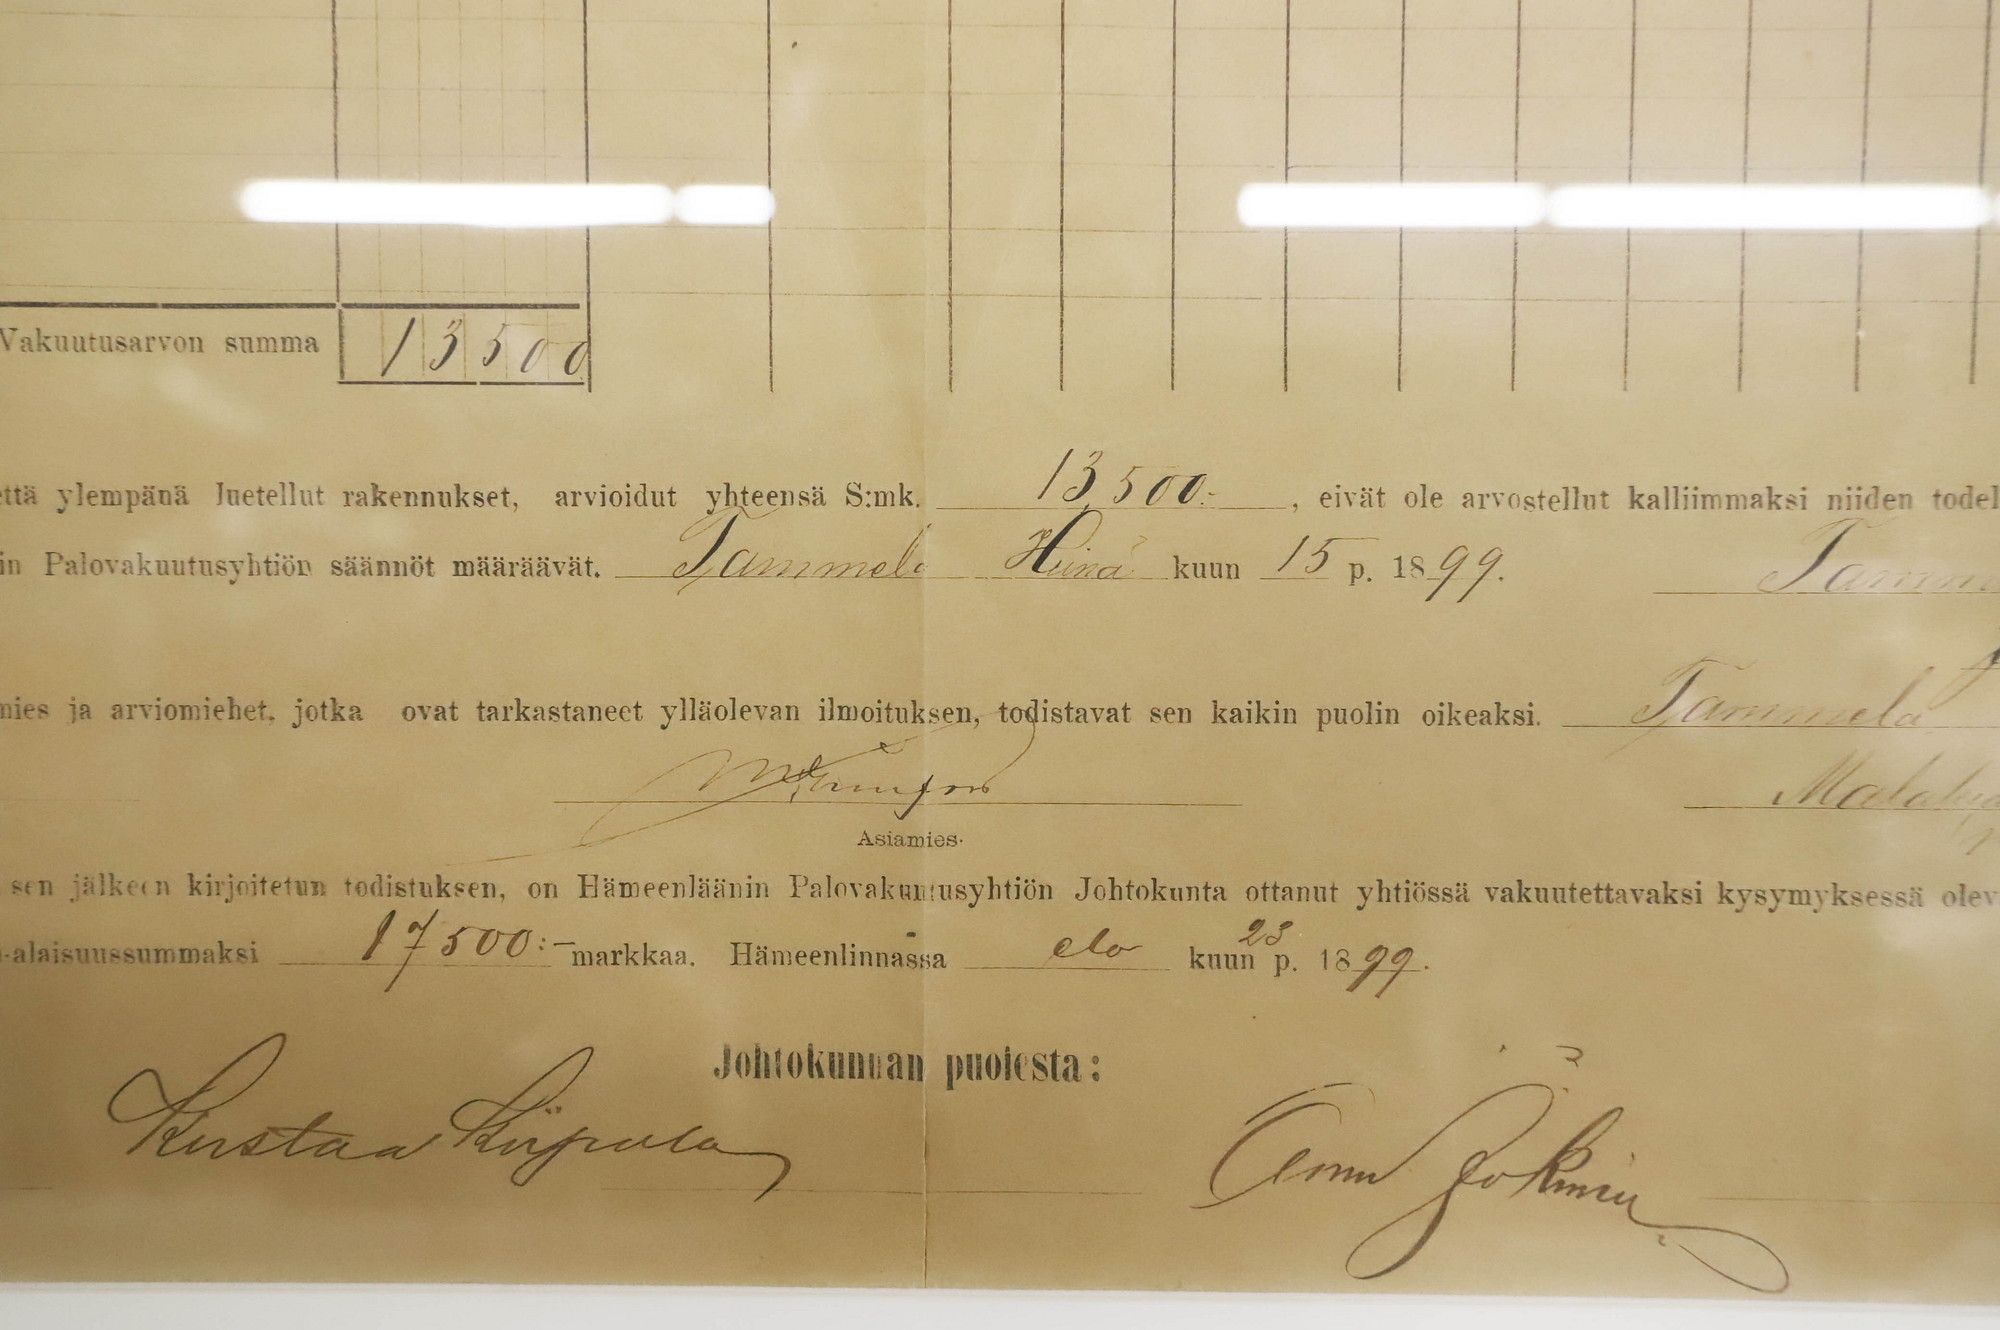 Vakuutusarvon summa 13500
että ylempänä luetellut rakennukset, arvioidut yhteensä S:mk. 13,500:-, eivät ole arvostellut kalliimmaksi niiden todel
in Palovakuutusyhtiön säännöt määräävät. Tammela Heinä kuun 15 p. 1899. Tamme
mies ja arviomiehet, jotka ovat tarkastaneet ylläolevan ilmoituksen, todistavat sen kaikin puolin oikeaksi. Tammela
Asiamies.
sen jälkeen kirjoitetun todistuksen, on Hämeenläänin Palovakuutusyhtiön Johtokunta ottanut yhtiössä vakuutettavaksi kysymyksessä olev
-alaisuussummaksi 17500:- markkaa. Hämeenlinnassa elo kuun 23 p. 1899.
Johtokunnan puolesta:
Kustaa